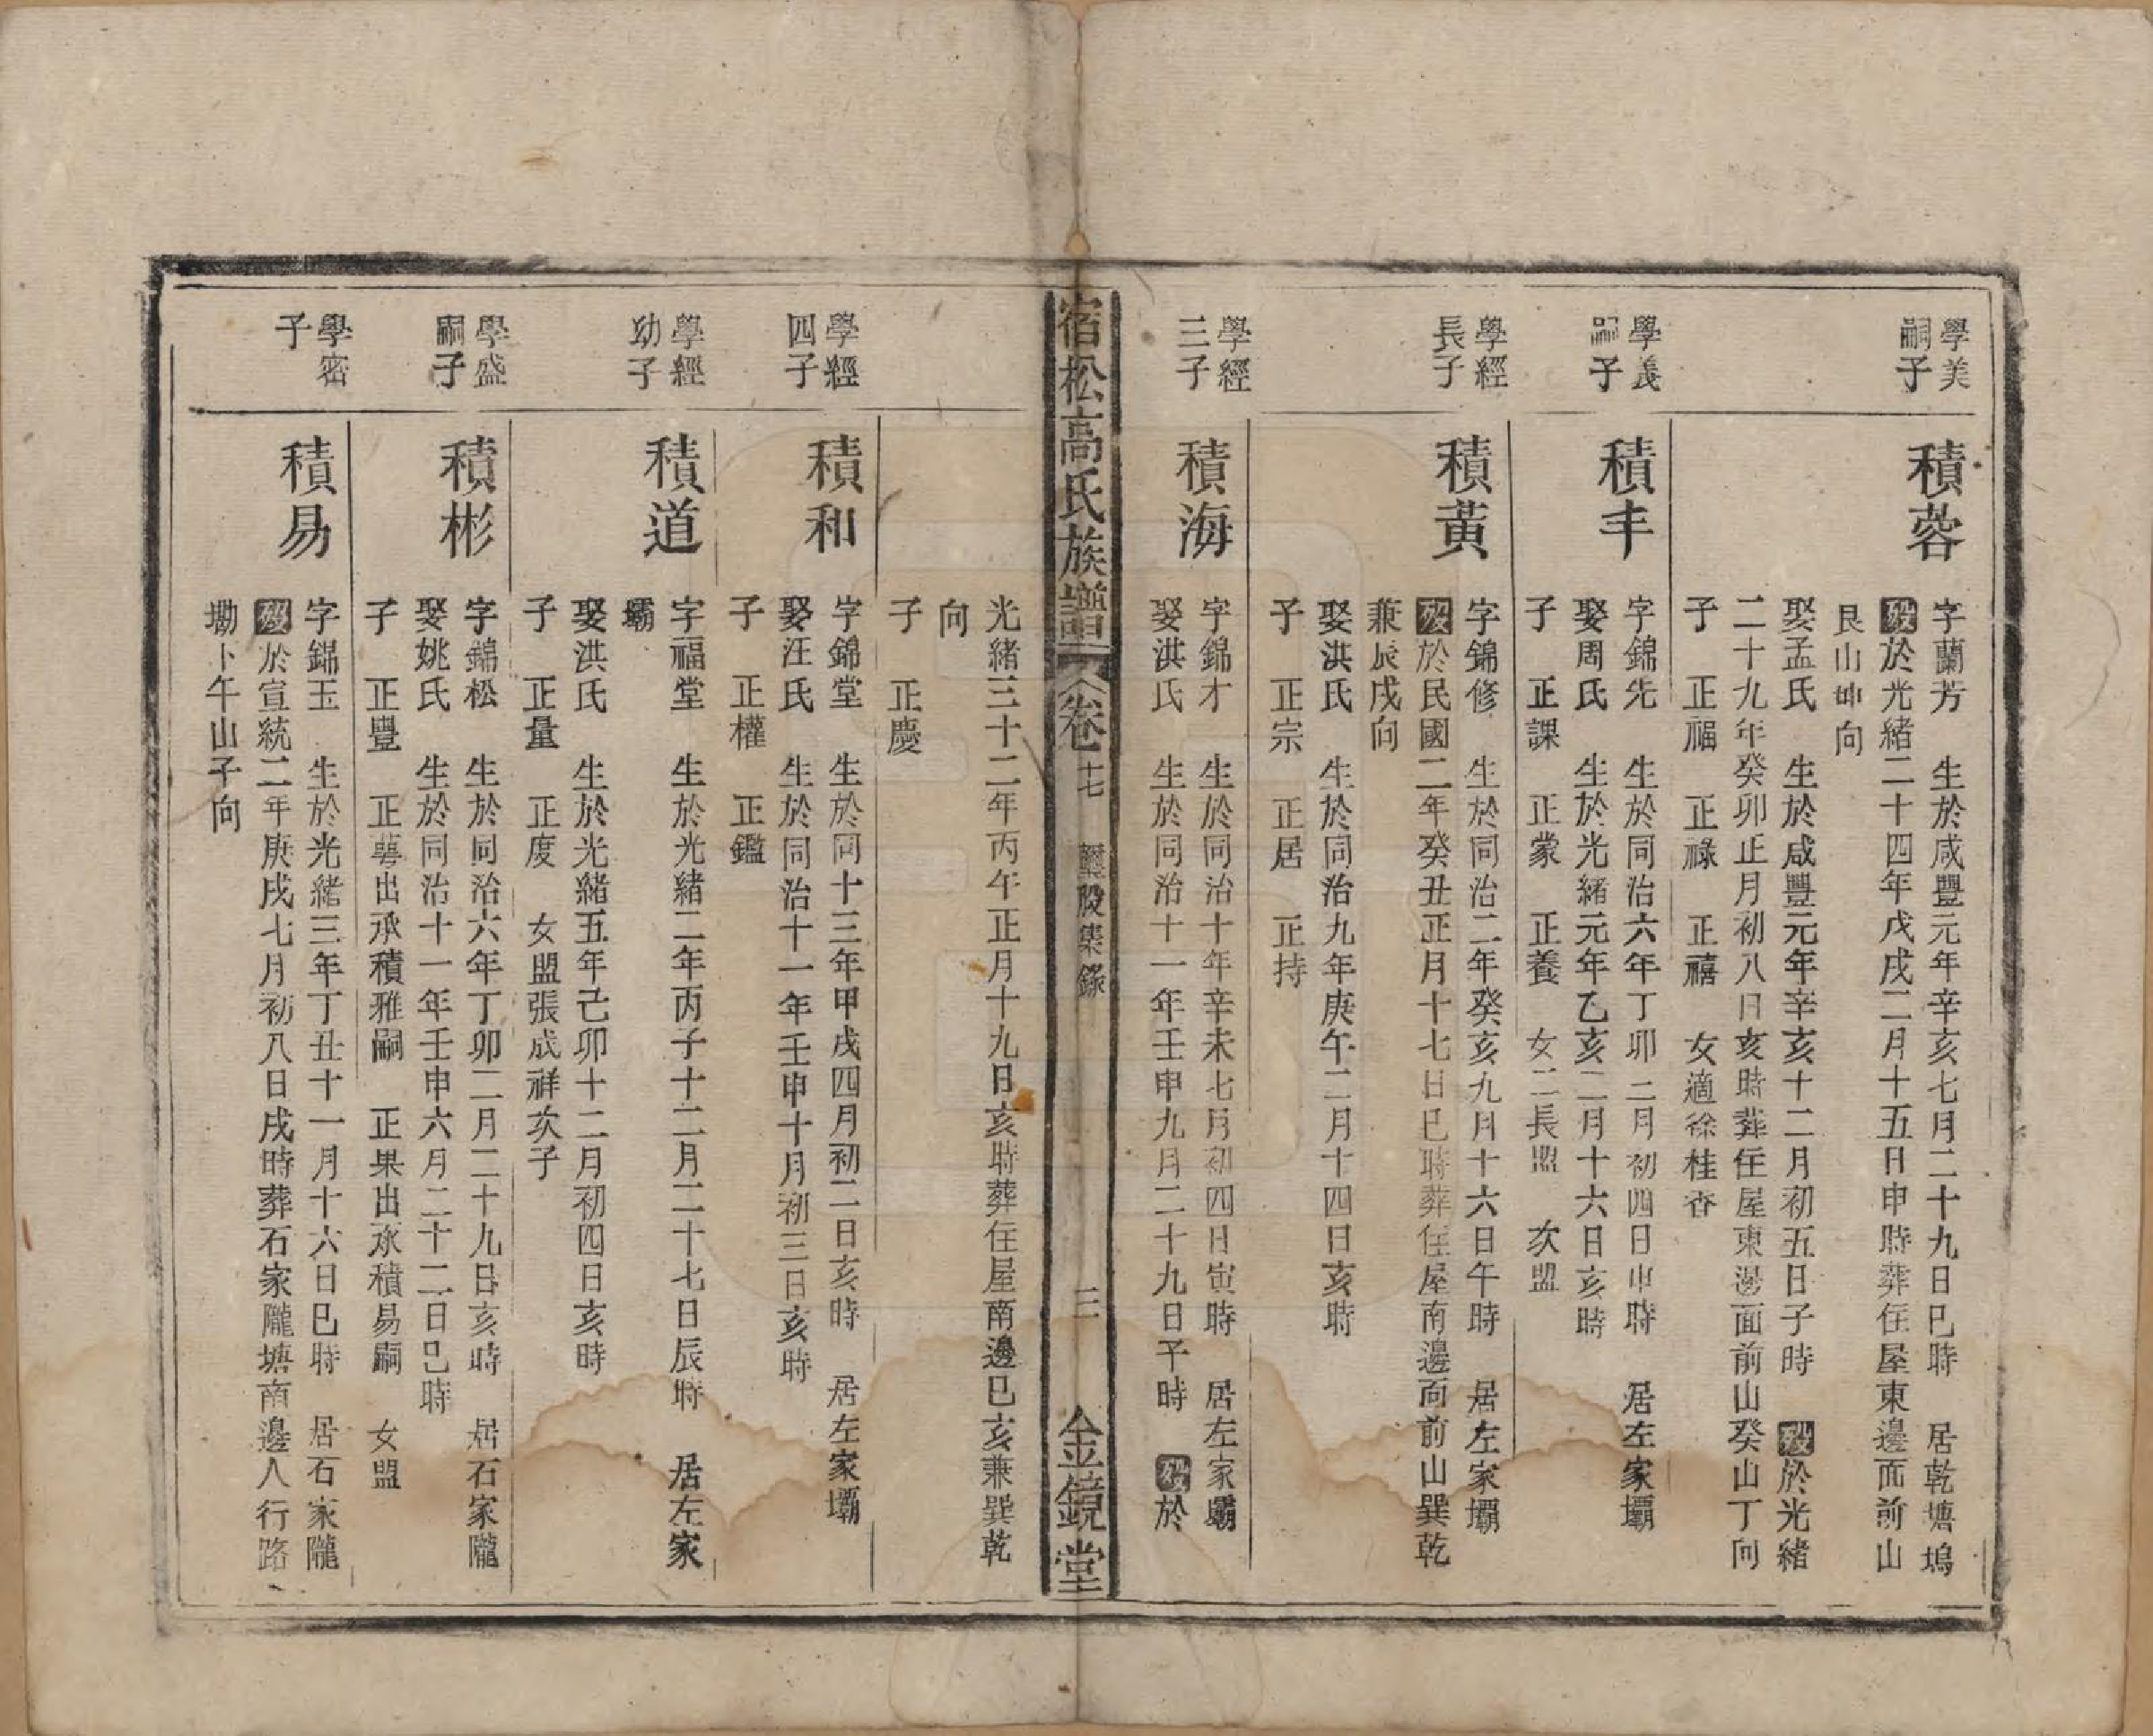 學美
嗣子
積蓉
字蘭芳 生於咸豐元年辛亥七月二十九日巳時 居乾塘塢
歿於光緒二十四年戊戌二月十五日申時葬住屋東邊面前山
艮山坤向
娶孟氏 生於咸豐元年辛亥十二月初五日子時 歿於光緒
二十九年癸卯正月初八日亥時葬住屋東邊面前山癸山丁向
子 正福 正祿 正禧 女適徐桂香
學義
嗣子
積丰
字錦先 生於同治六年丁卯二月初四日申時 居左家壩
娶周氏 生於光緒元年乙亥二月十六日亥時
子 正課 正蒙 正養 女二長盟 次盟
學經
長子
積黃
字錦修 生於同治二年癸亥九月十六日午時 居左家壩
歿於民國二年癸丑正月十七日巳時葬住屋南邊面前山巽乾
兼辰戌向
娶洪氏 生於同治九年庚午二月十四日亥時
子 正宗 正居 正持
學經
三子
積海
字錦才 生於同治十年辛未七月初四日寅時 居左家壩
娶洪氏 生於同治十一年壬申九月二十九日午時 歿於
宿松高氏族譜 卷十七 股集錄 三 金鏡堂
光緒三十二年丙午正月十九日亥時葬住屋南邊巳亥兼巽乾
向
子 正慶
學經
四子
積和
字錦堂 生於同十三年甲戌四月初二日亥時 居左家壩
娶汪氏 生於同治十一年壬申十月初三日亥時
子 正權 正鑑
學經
幼子
積道
字福堂 生於光緒二年丙子十二月二十七日辰時 居左家
壩
娶洪氏 生於光緒五年己卯十二月初四日亥時
子 正量 正度 女盟張成祥次子
學盛
嗣子
積彬
字錦松 生於同治六年丁卯二月二十九日亥時 居石家隴
娶姚氏 生於同治十一年壬申六月二十二日巳時
子 正豐 正萼出承積雅嗣 正果出承積易嗣 女盟
學密
子
積易
字錦玉 生於光緒三年丁丑十一月十六日巳時 居石家隴
歿於宣統二年庚戌七月初八日戌時葬石家隴塘南邊人行路
墈卜午山子向